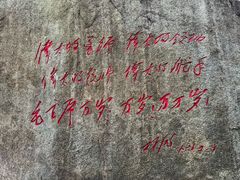 伟大的导师 伟大的领袖
伟大的统帅 伟大的舵手
毛主席万岁 万岁 万万岁
林彪